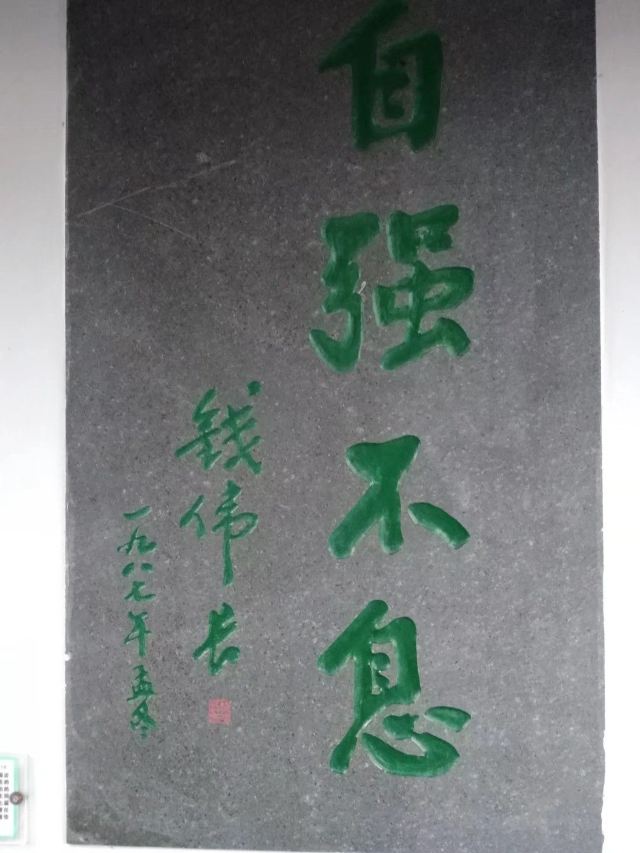 自强不息
钱伟长
一九八七年孟冬